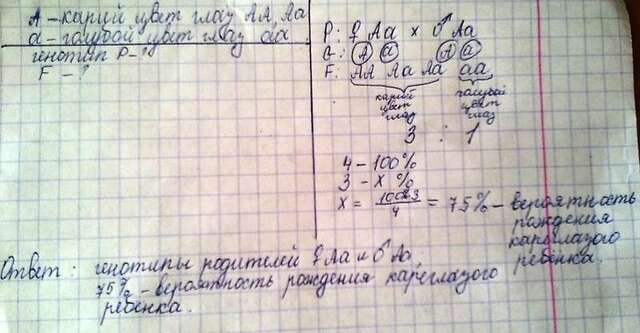 А – карий цвет глаз АА, Аа
а – голубой цвет глаз аа
генотип Р – ?
F – ?
Р: ♀ Аа × ♂ Аа
G: А а А а
F: АА Аа Аа аа
карий цвет глаз
голубой цвет глаз
3 : 1
4 – 100%
3 – х %
х = 100·3/4 = 75% – вероятность рождения кареглазого ребёнка.
Ответ: генотипы родителей ♀ Аа и ♂ Аа,
75% – вероятность рождения кареглазого
ребёнка.